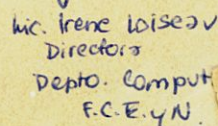 Lic. Irene Loiseau
Directora
Depto. Comput
F.C.E. y N.